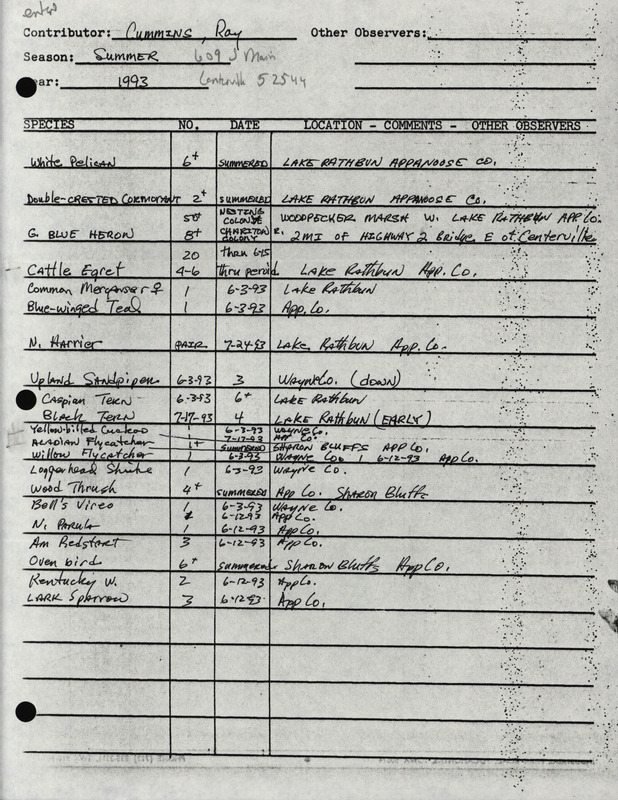 enter
Contributor: Cummins, Ray Other Observers:
Season: Summer 609 S Main
Year: 1993 Centerville 52544
SPECIES NO. DATE LOCATION - COMMENTS - OTHER OBSERVERS
White Pelican 6+ summered LAKE RATHBUN APPANOOSE CO.
Double-crested Cormorant 2+ summered LAKE RATHBUN APPANOOSE Co.
50 NESTING COLONY WOODPECKER MARSH W. LAKE RATHBUN APP. CO.
G. BLUE HERON 8+ CHARITON R. COLONY 2MI OF HIGHWAY 2 Bridge E of Centerville
20 thru 6-15
Cattle Egret 4-6 thru period Lake Rathbun App. Co.
Common Merganser ♀ 1 6-3-93 Lake Rathbun
Blue-winged Teal 1 6-3-93 App. Co.
N. Harrier PAIR 7-24-93 Lake Rathbun App. Co.
Upland Sandpiper 6-3-93 3 Wayne Co. (down)
Caspian Tern 6-3-93 6+ LAKE Rathbun
Black Tern 7-17-93 4 LAKE Rathbun (EARLY)
Yellow-billed Cuckoo 1 6-3-93 Wayne Co.
7-17-93 App Co.
Acadian Flycatcher 1+ summered SHARON BLUFFS APP CO.
Willow Flycatcher 1 6-3-93 Wayne Co. 1 6-12-93 App Co.
Loggerhead Shrike 1 6-3-93 Wayne Co.
Wood Thrush 4+ summered App Co. Sharon Bluffs
Bell's Vireo 1 6-3-93 Wayne Co.
6-12-93 App Co.
N. Parula 1 6-12-93 App Co.
Am Redstart 3 6-12-93 App Co.
Oven bird 6+ summered Sharon Bluffs App Co.
Kentucky W. 2 6-12-93 App Co.
LARK Sparrow 3 6-12-93 App Co.